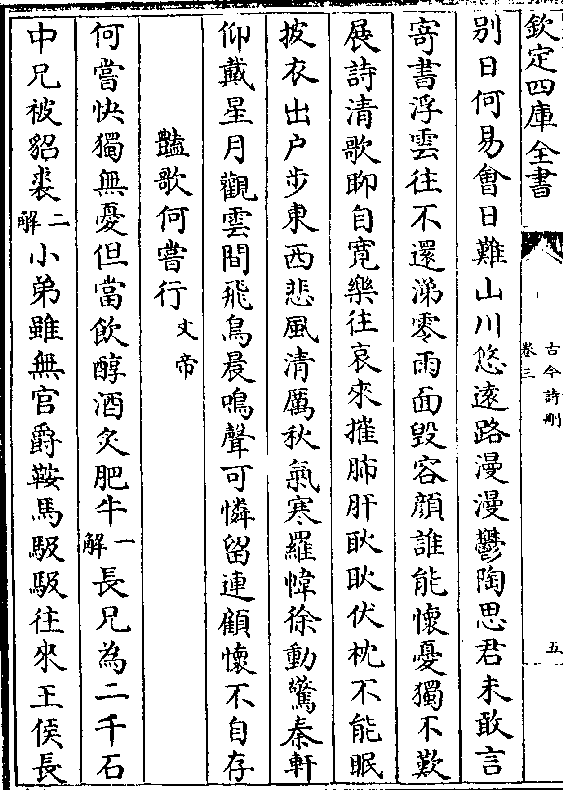 欽定四庫全書
古今詩刪
卷三
五
別日何易會日難山川悠遠路漫漫鬱陶思君未敢言
寄書浮雲往不還涕零雨面毀容顔誰能懷憂獨不歎
展詩清歌聊自寛樂往哀來摧肺肝耿耿伏枕不能眠
披衣出户步東西悲風清厲秋氣寒羅幃徐動驚秦軒
仰戴星月觀雲間飛鳥晨鳴聲可憐留連顧懷不自存
豔歌何嘗行 文帝
何嘗快獨無憂但當飲醇酒炙肥牛一解長兄為二千石
中兄被貂裘二解小弟雖無官爵鞍馬馺馺往來王侯長